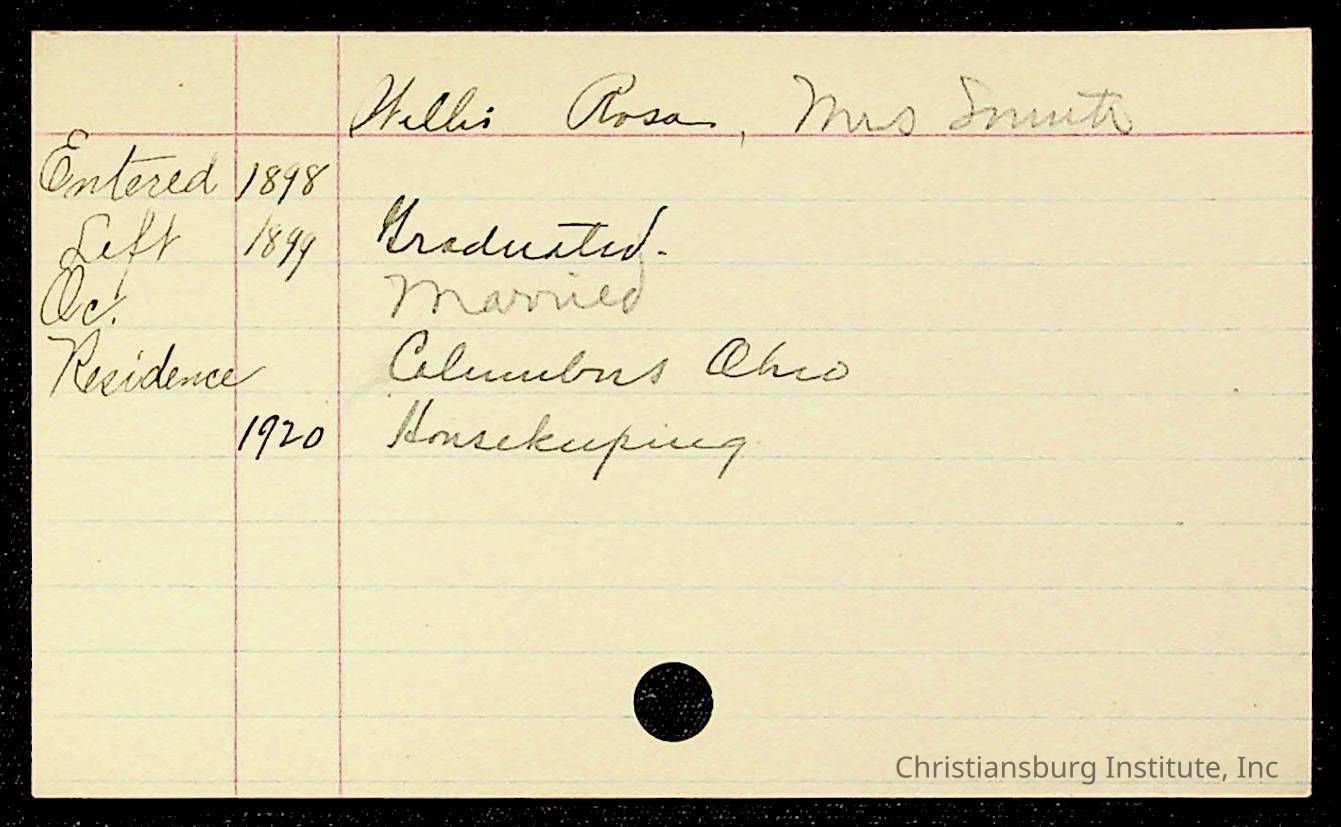 Willis Rosa, Mrs Smith
Entered 1898
Left 1899 Graduated.
Oc. Married
Residence Columbus Ohio
1920 Housekeeping
Christiansburg Institute, Inc